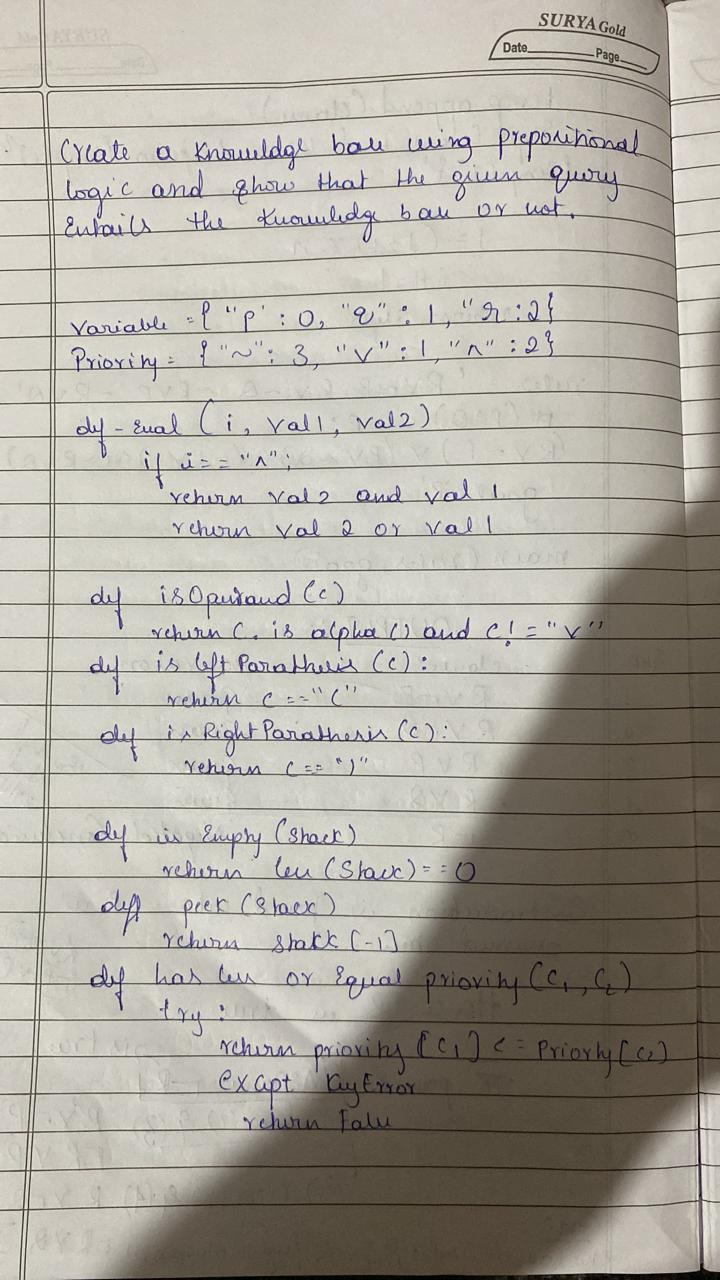 SURYA Gold
Date Page
Create a knowledge base using prepositional
logic and show that the given query
Entails the knowledge base or not.
Variable = { "p" : 0, "q" : 1, "r : 2}
Priority = { "~" : 3, "v" : 1, "^" : 2}
def - Eval (i, val1, val2)
if i == "^";
return val 2 and val 1
return val 2 or val 1
def isOperand (c)
return c. is alpha () and c! = "v"
def is left Parathesis (c) :
return c == "("
def is Right Parathesis (c) :
return c == ")"
def is Empty (Stack)
return len (Stack) == 0
def peek (Stack)
return stakk [-1]
def has less or Equal priority (C1, C2)
try :
return priority [C1] <= Priority [C2]
except KeyError
return False